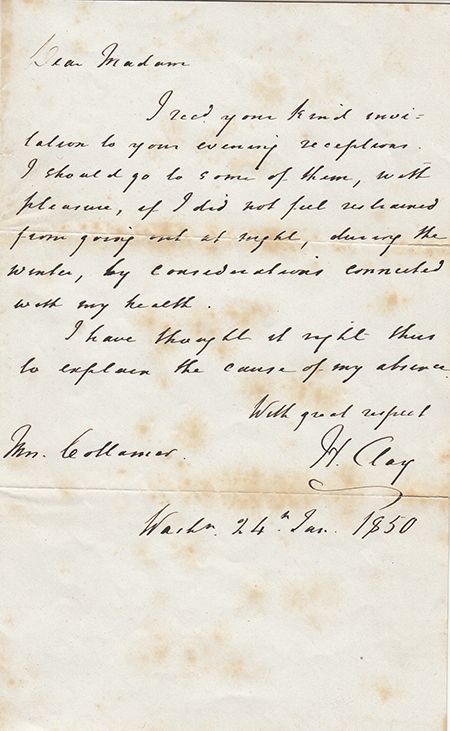 Dear Madam
I recd your kind invi-
tation to your evening receptions.
I should go to some of them, with
pleasure, if I did not feel restrained
from going out at night, during the
winter, by considerations connected
with my health.
I have thought it right thus
to explain the cause of my absence
With great respect
Mrs. Collamer. H. Clay
Washn. 24th Jan. 1850